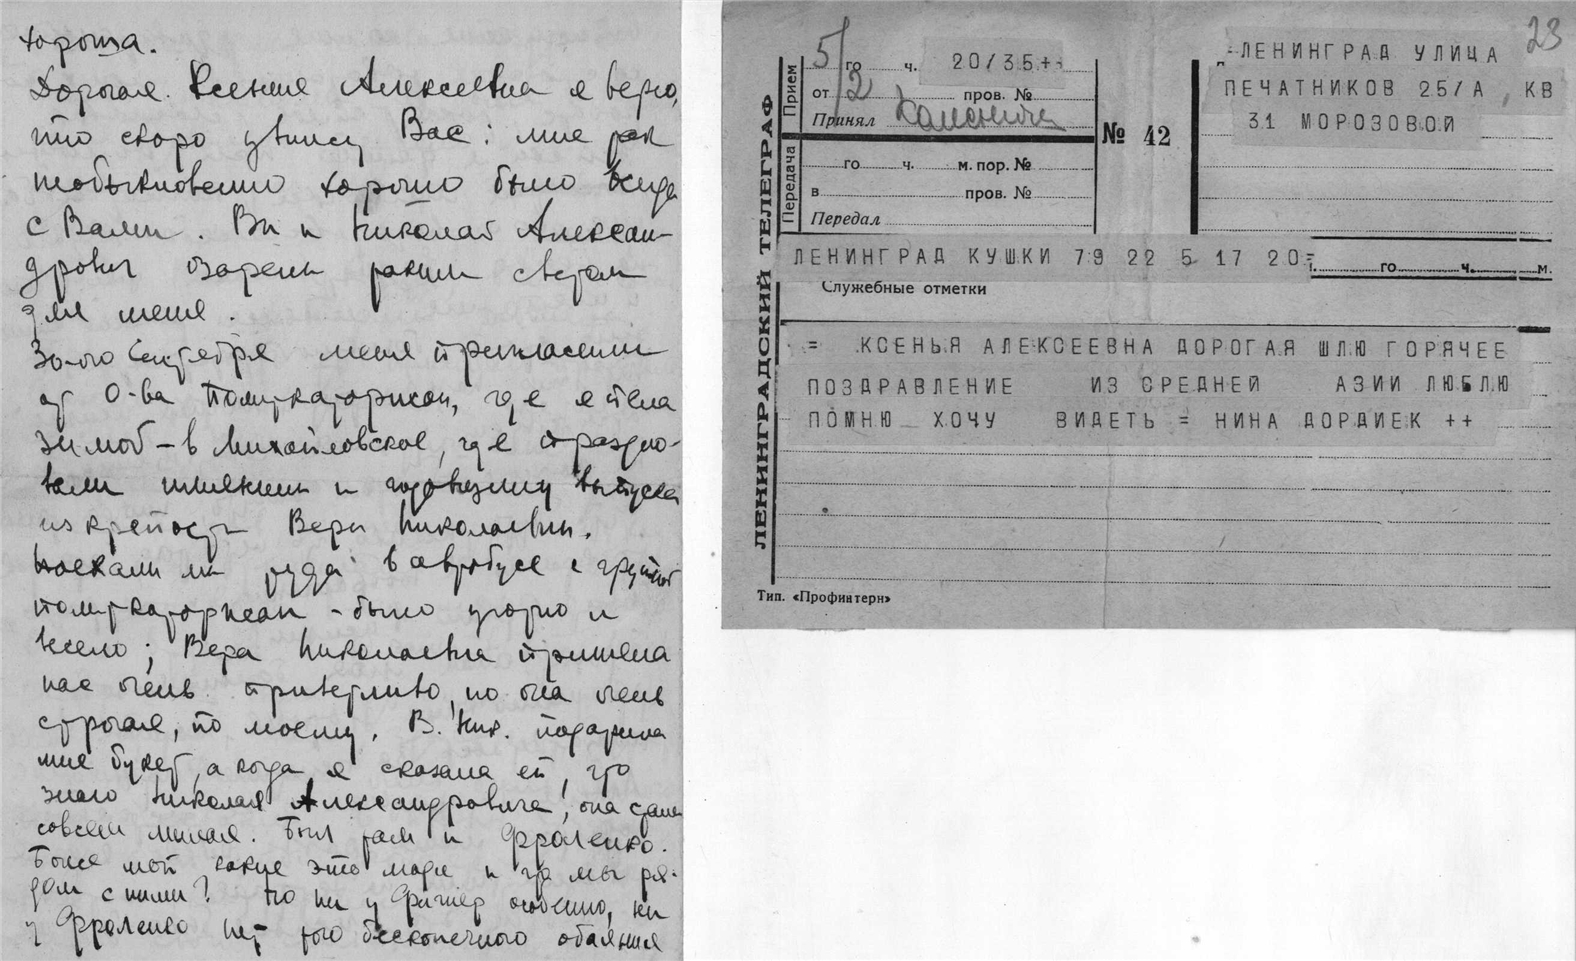 хороша.
Дорогая Ксения Алексеевна я верю,
что скоро увижу Вас: мне так
необыкновенно хорошо было всегда
с Вами. Вы и Николай Алексан-
дрович озарены таким светом
для меня.
30-го Сентября меня пригласили
от О-ва Политкаторжан, где я пела
зимой – в Михайловское, где праздно-
вали имянины и годовщину выпуска
из крепости Веры Николаевны.
Поехали мы туда в автобусе с группой
политкаторжан – было уютно и
весело; Вера Николаевна приняла
нас очень приветливо, но она очень
строгая, по моему. В. Ник. подарила
мне букет, а когда я сказала ей, что
знаю Николая Александровича, она стала
совсем милая. Был там и Фроленко.
Боже мой какие это люди и что мы ря-
дом с ними? Но ни у Фигнер особенно, ни
у Фроленко нет того бесконечного обаяния
23
ЛЕНИНГРАДСКИЙ ТЕЛЕГРАФ
Прием
5/2 го ч. 20/35+
от пров. №
Принял
Передача
го ч. м. пор. №
в пров. №
Передал
№ 42
=ЛЕНИНГРАД УЛИЦА
ПЕЧАТНИКОВ 25/А, КВ
31 МОРОЗОВОЙ
ЛЕНИНГРАД КУШКИ 79 22 5 17 20=
го ч. м.
Служебные отметки
= КСЕНЬЯ АЛЕКСЕЕВНА ДОРОГАЯ ШЛЮ ГОРЯЧЕЕ
ПОЗДРАВЛЕНИЕ ИЗ СРЕДНЕЙ АЗИИ ЛЮБЛЮ
ПОМНЮ ХОЧУ ВИДЕТЬ = НИНА ДОРДИЕК ++
Тип. «Профинтерн»